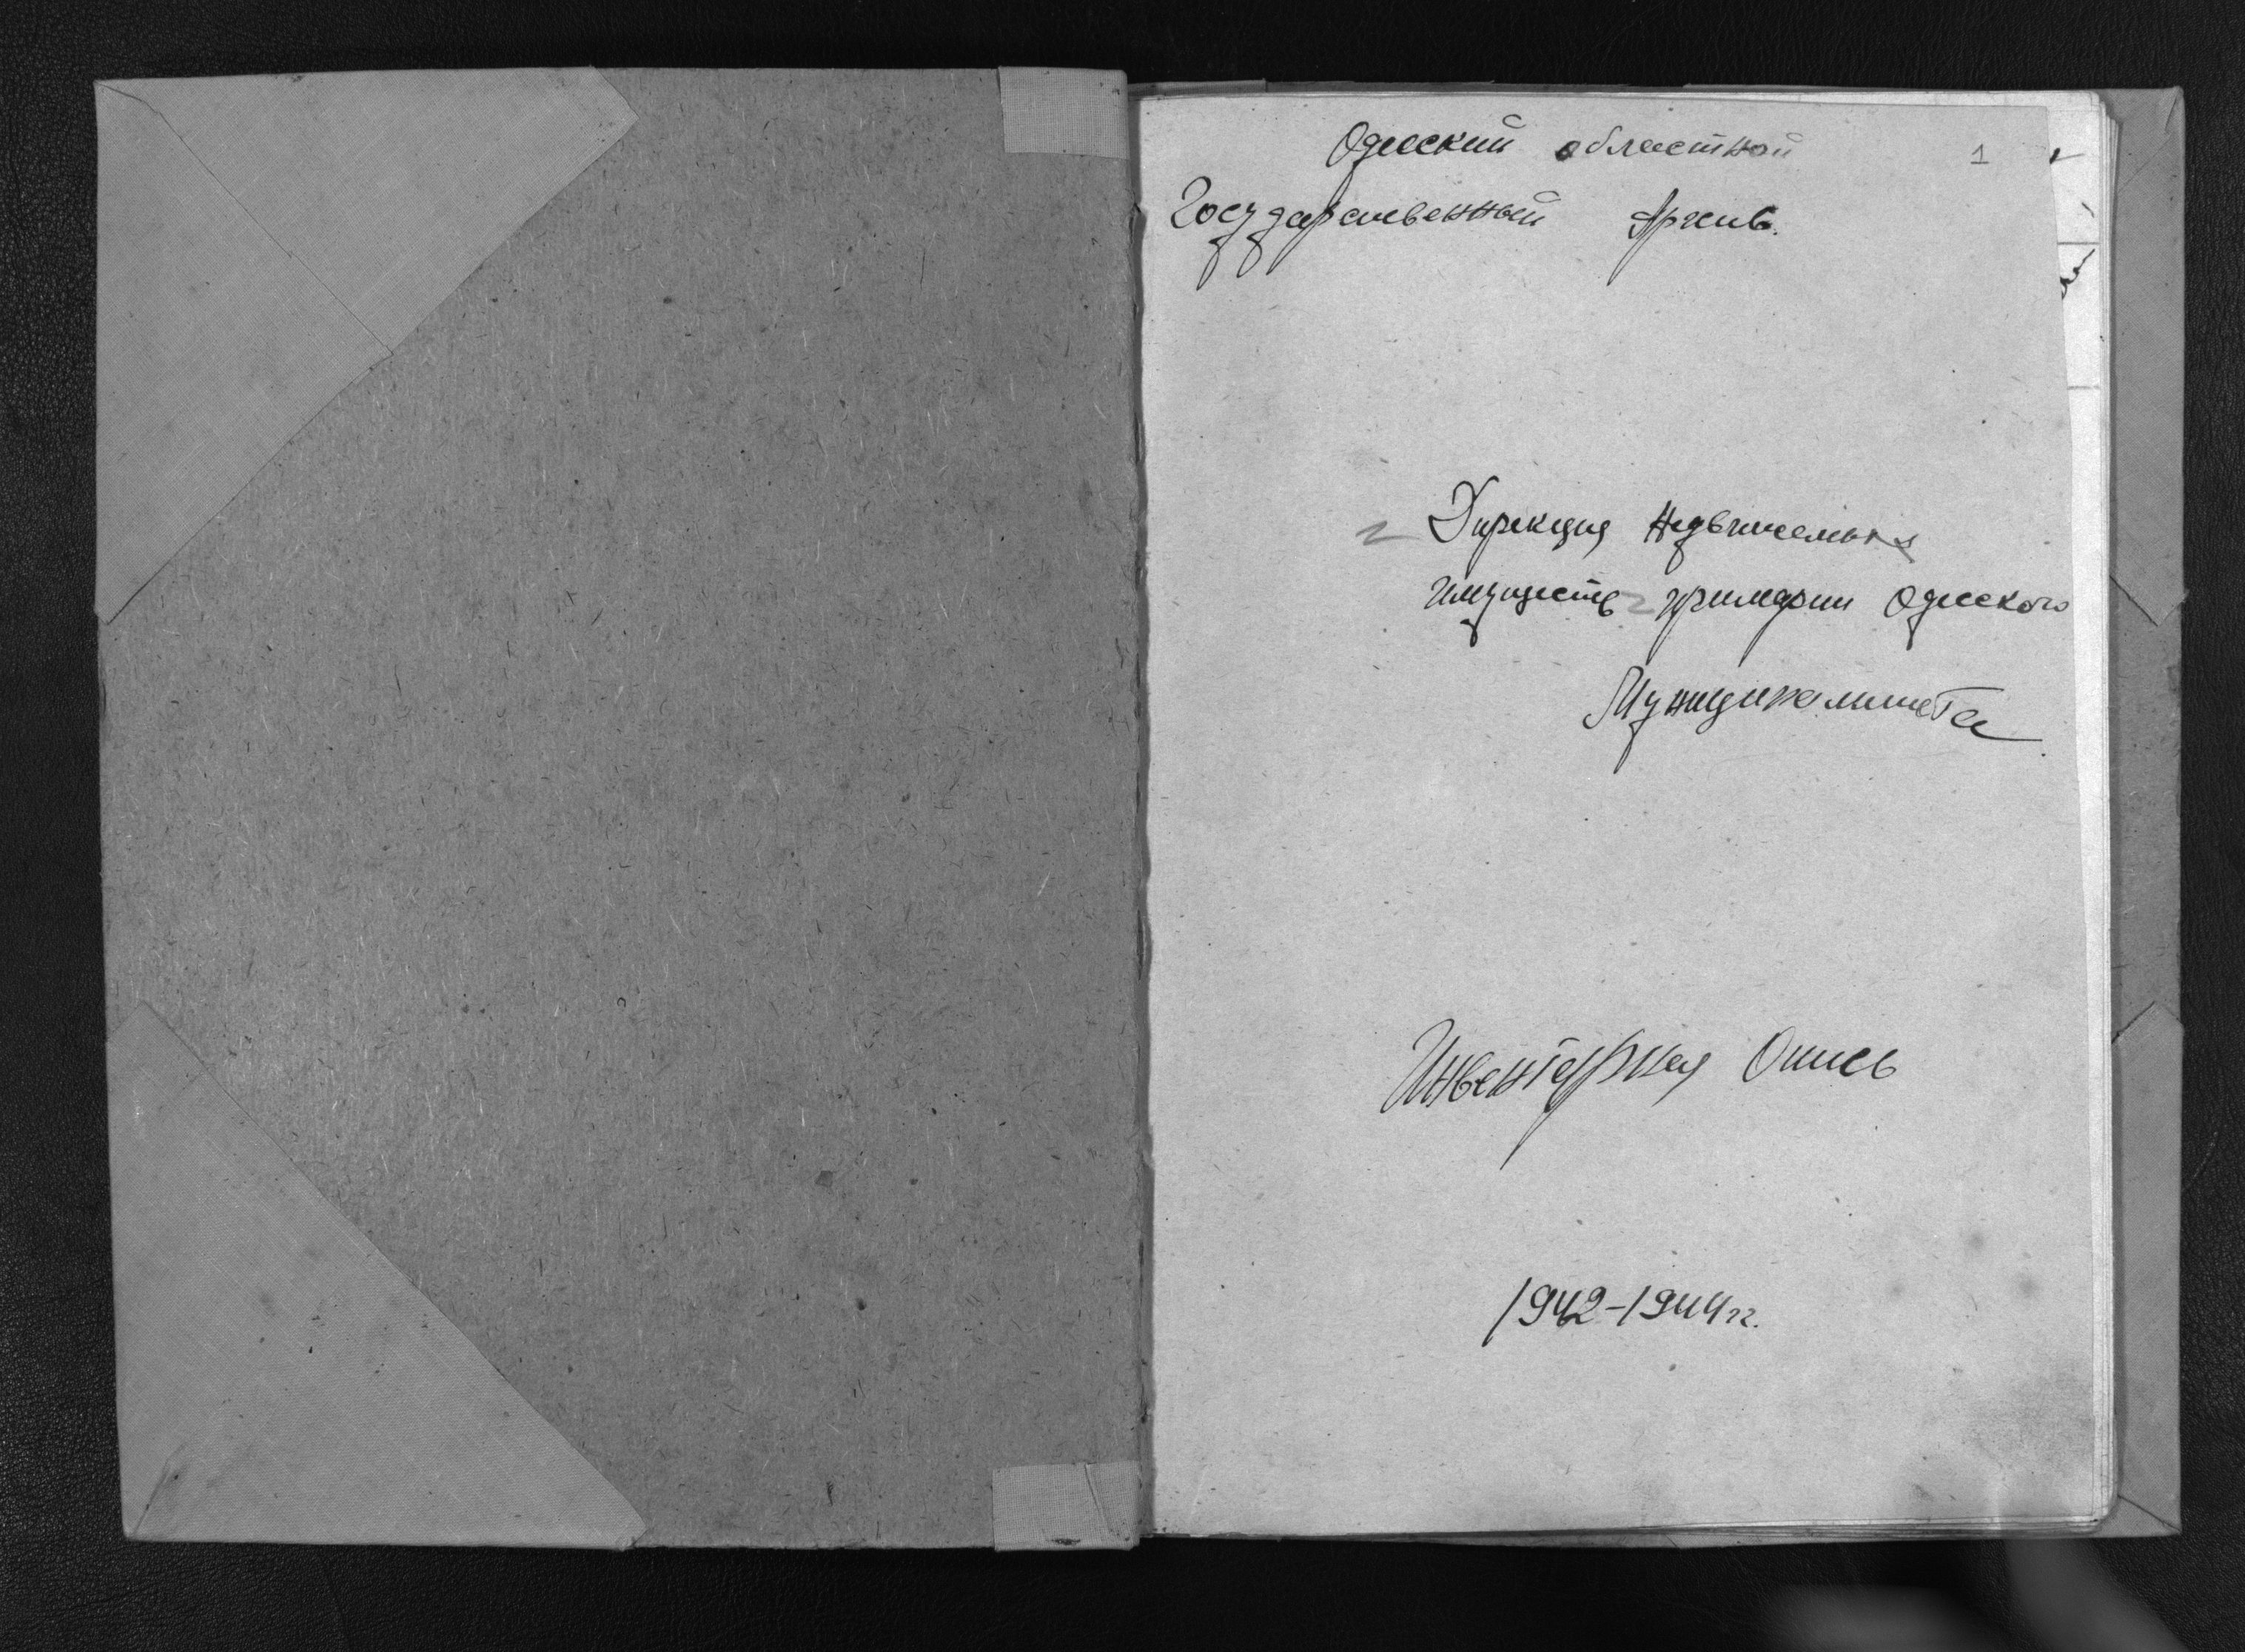 Одесский областной
1
Государственный Архив.
Дирекция Недвижемых
имуществ примарии Одесского
Муниципалитета
Инвентарная Опись
1942-1944 гг.